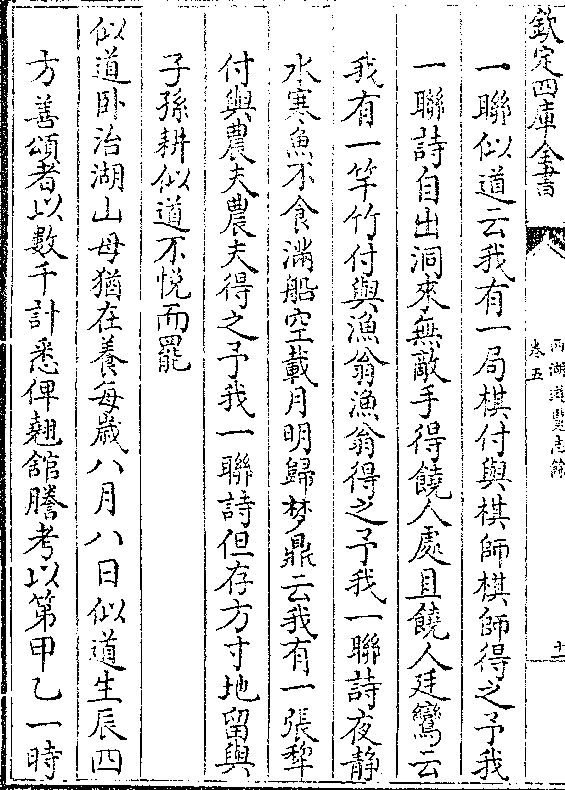 欽定四庫全書
西湖遊覽志餘
卷五
十一
一聯似道云我有一局棋付與棋師棋師得之予我
一聯詩自出洞來無敵手得饒人處且饒人廷鸞云
我有一竿竹付與漁翁漁翁得之予我一聯詩夜静
水寒魚不食滿船空載月明歸梦鼎云我有一張犁
付與農夫農夫得之予我一聯詩但存方寸地留與
子孫耕似道不悅而罷
似道卧治湖山母猶在養每歲八月八日似道生辰四
方善頌者以數千計悉俾翹館謄考以第甲乙一時